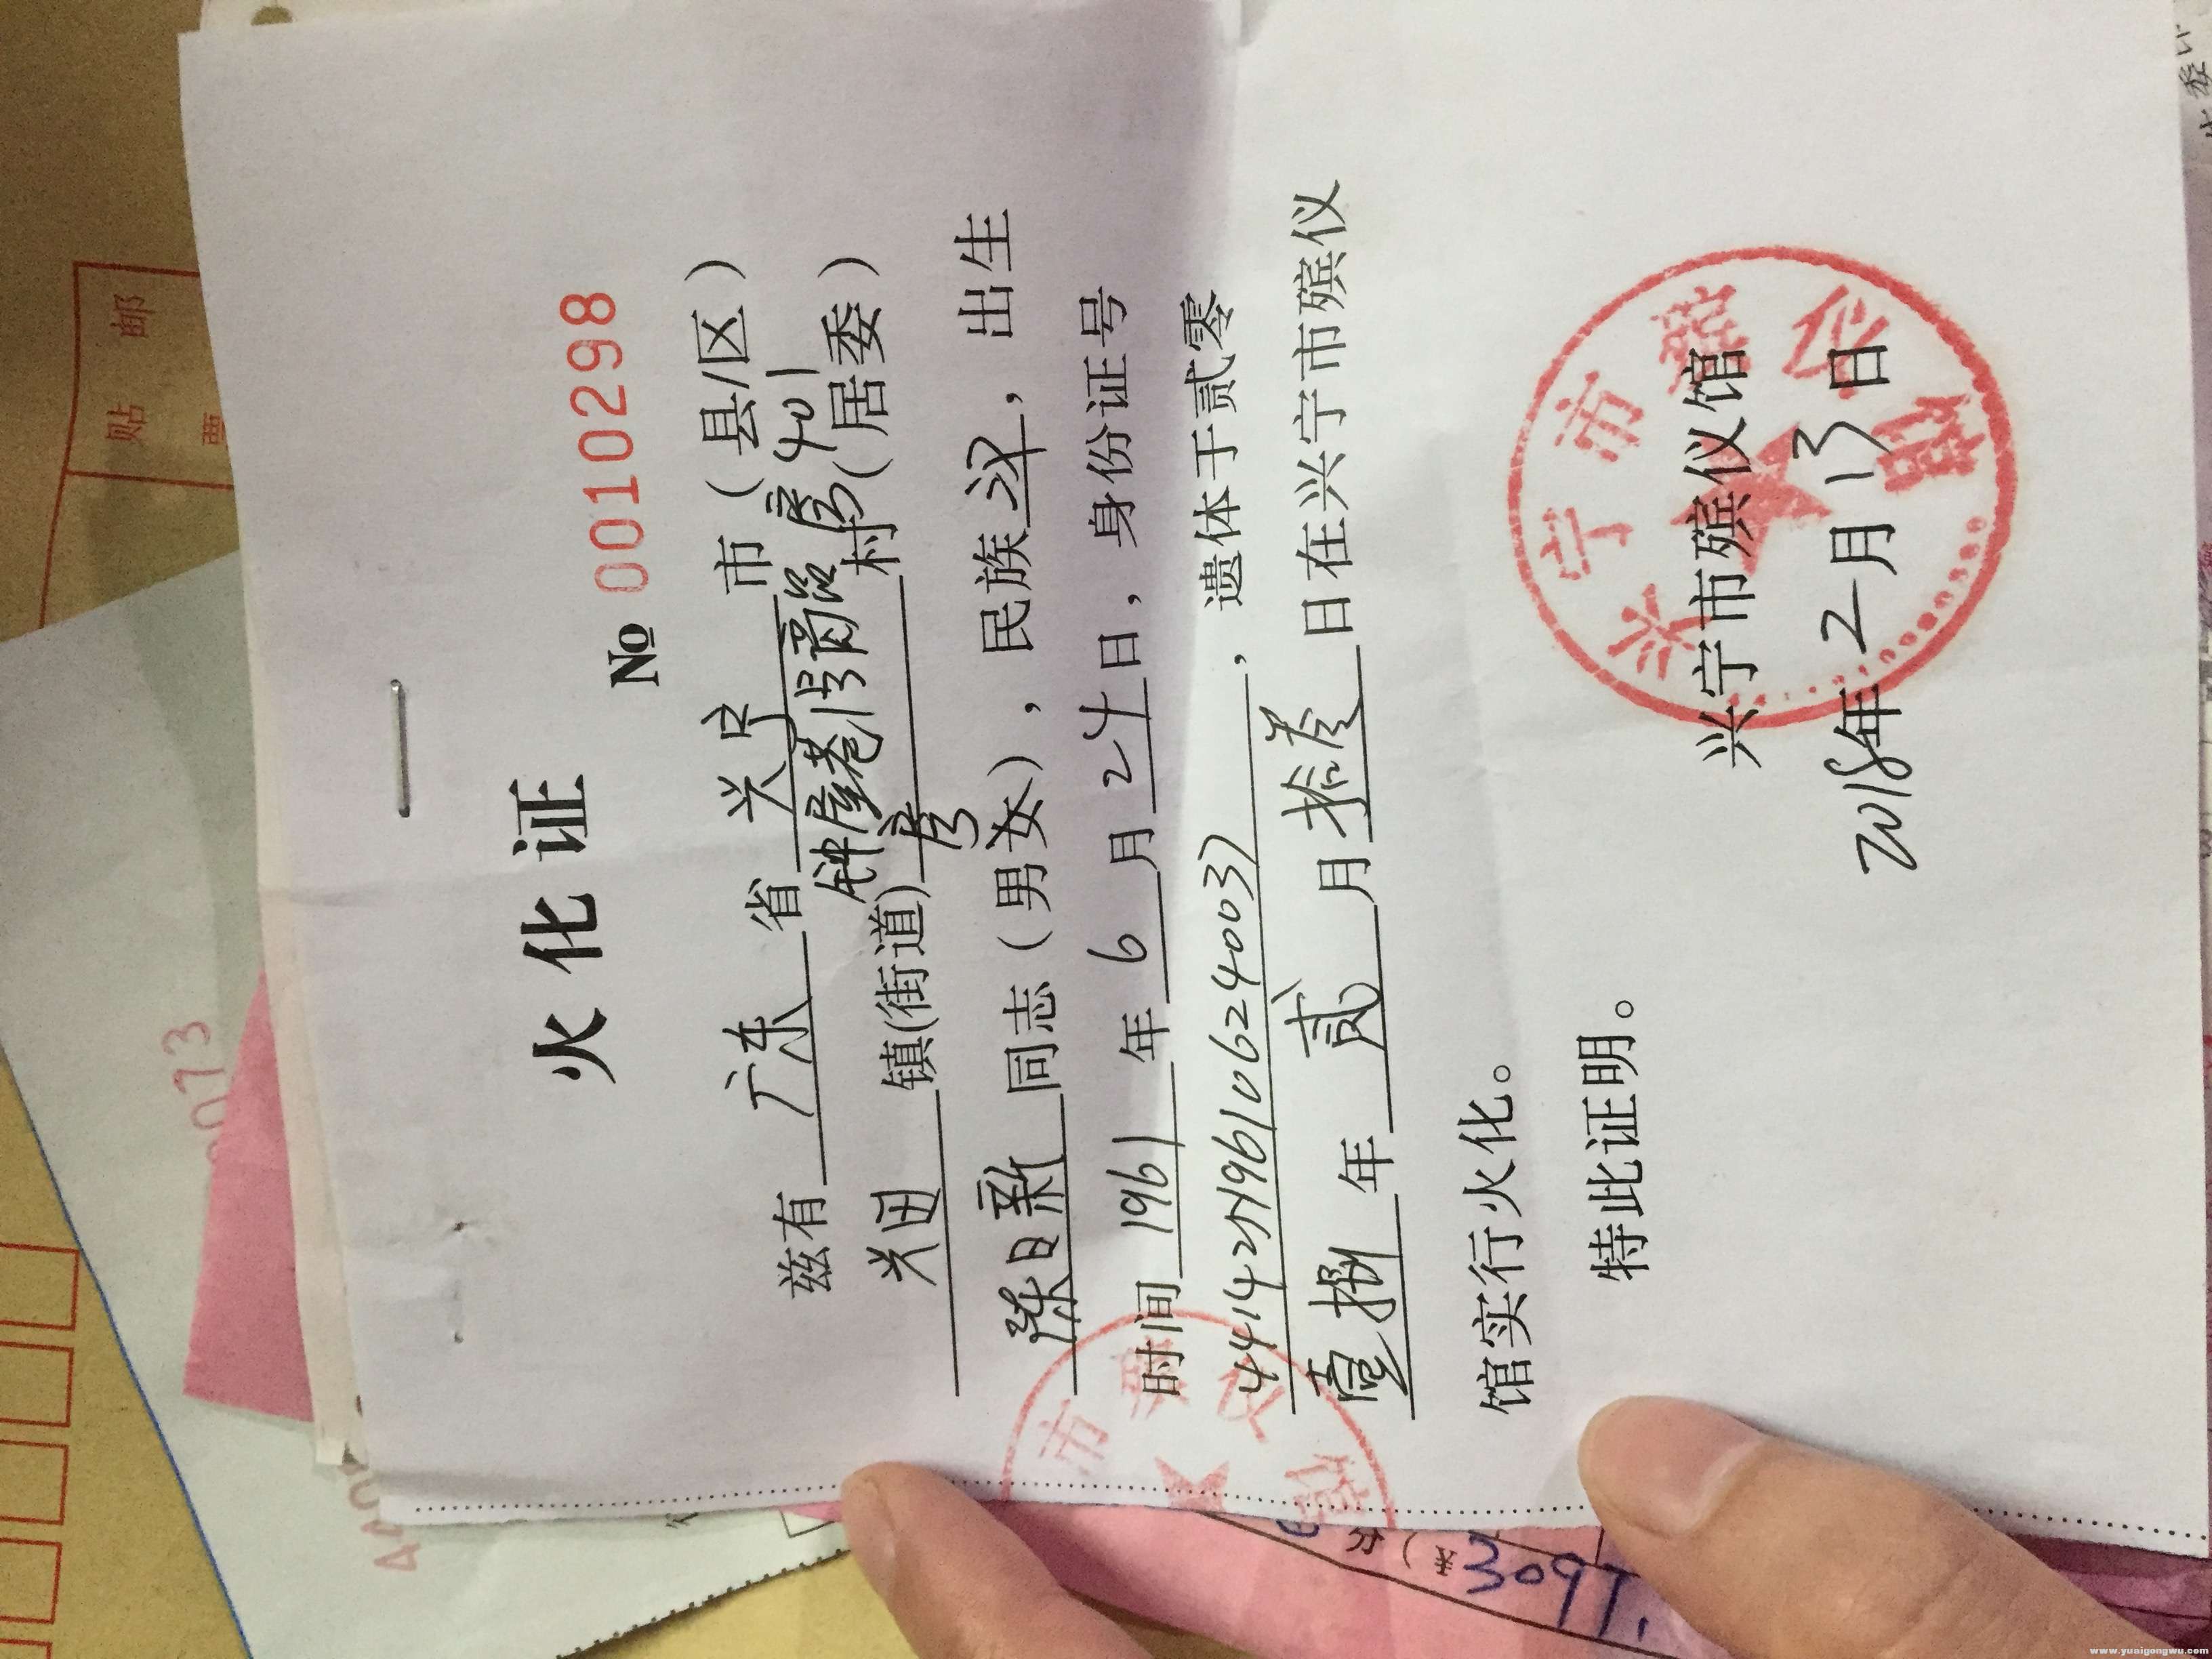 火化证
№ 0010298
兹有 广东 省 兴宁 市（县/区）
钟屋巷1号丽晶 401
兴田 镇(街道) 村（居委）
陈日新 同志（男女），民族 汉，出生
时间 1961 年 6 月 24 日，身份证号
441425196106240037，遗体于贰零
壹捌 年 贰 月 拾叁 日在兴宁市殡仪
馆实行火化。
特此证明。
兴宁市殡仪馆
2018年2月13日
兴宁市殡仪馆
市殡仪馆
贴 邮
票
0013
440
分（¥3097.
www.yuaigongwu.com